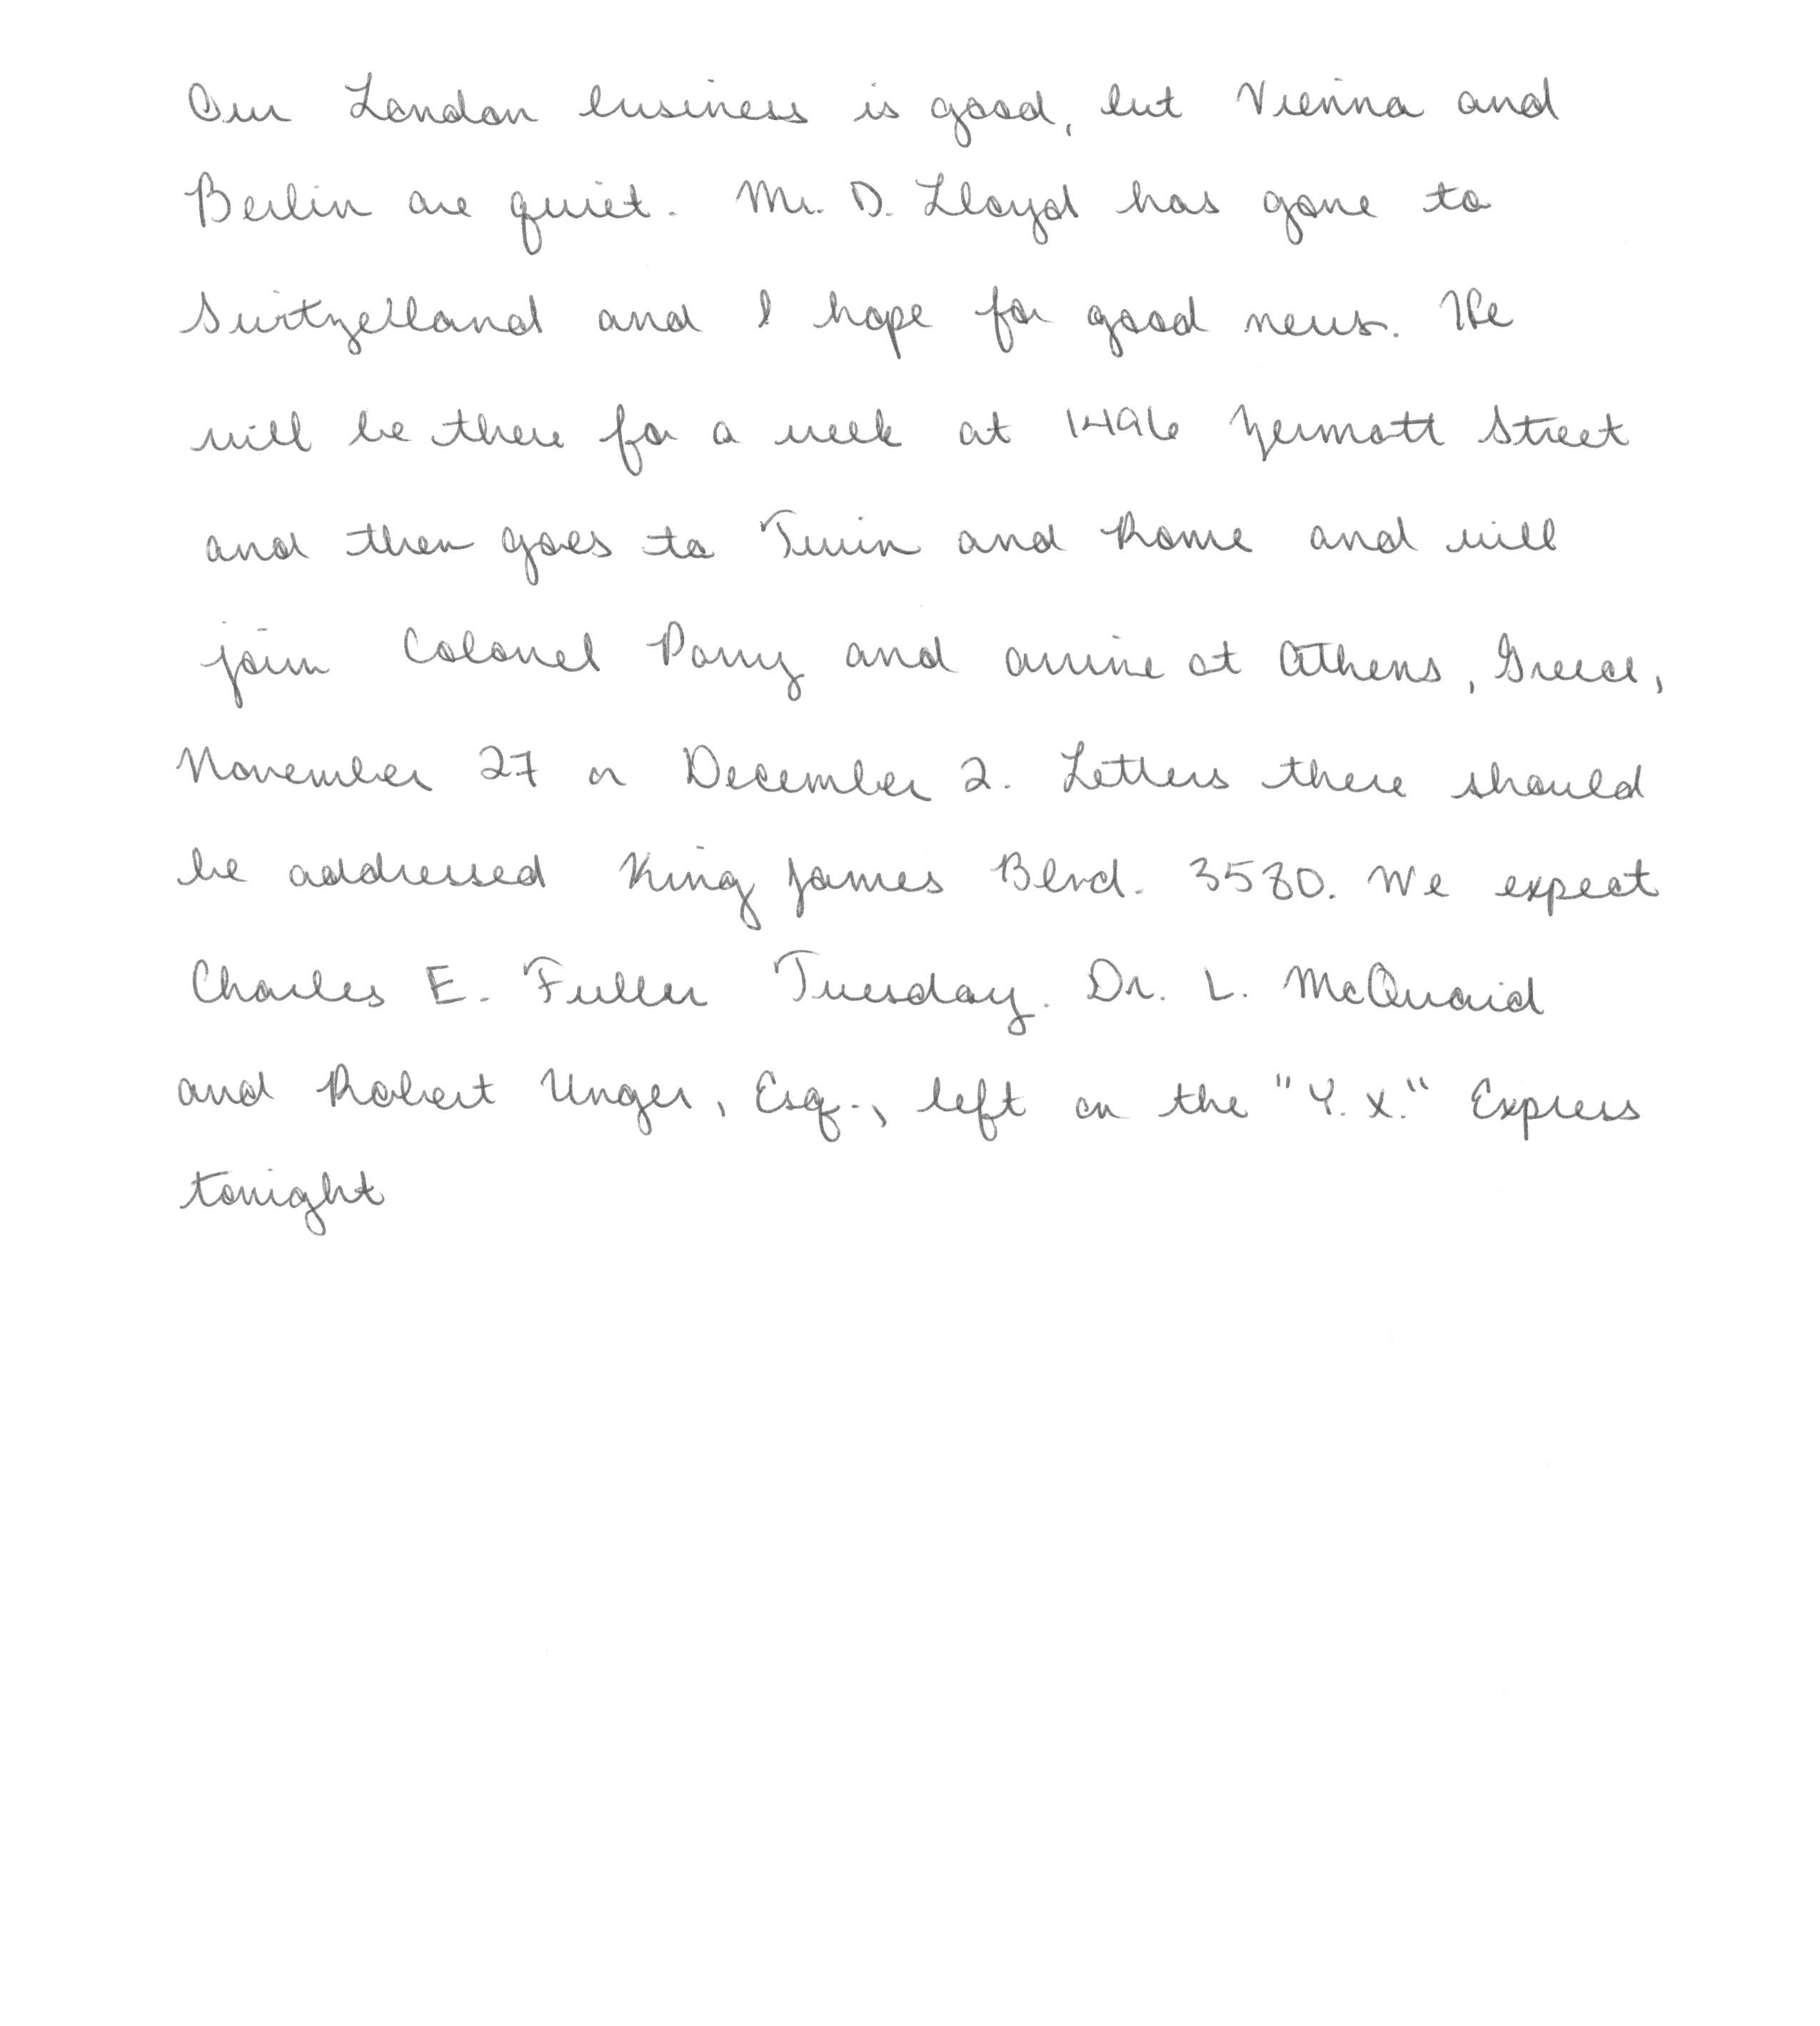 Our London business is good, but Vienna and
Berlin are quiet. Mr. D. Lloyd has gone to
Switzerland and I hope for good news. He
will be there for a week at 1496 Zermott Street
and then goes to Turin and Rome and will
join Colonel Parry and arrive at Athens, Greece,
November 27 or December 2. Letters there should
be addressed King James Blvd. 3580. We expect
Charles E. Fuller Tuesday. Dr. L. McQuaid
and Robert Unger, Esq., left on the "Y.X." Express
tonight